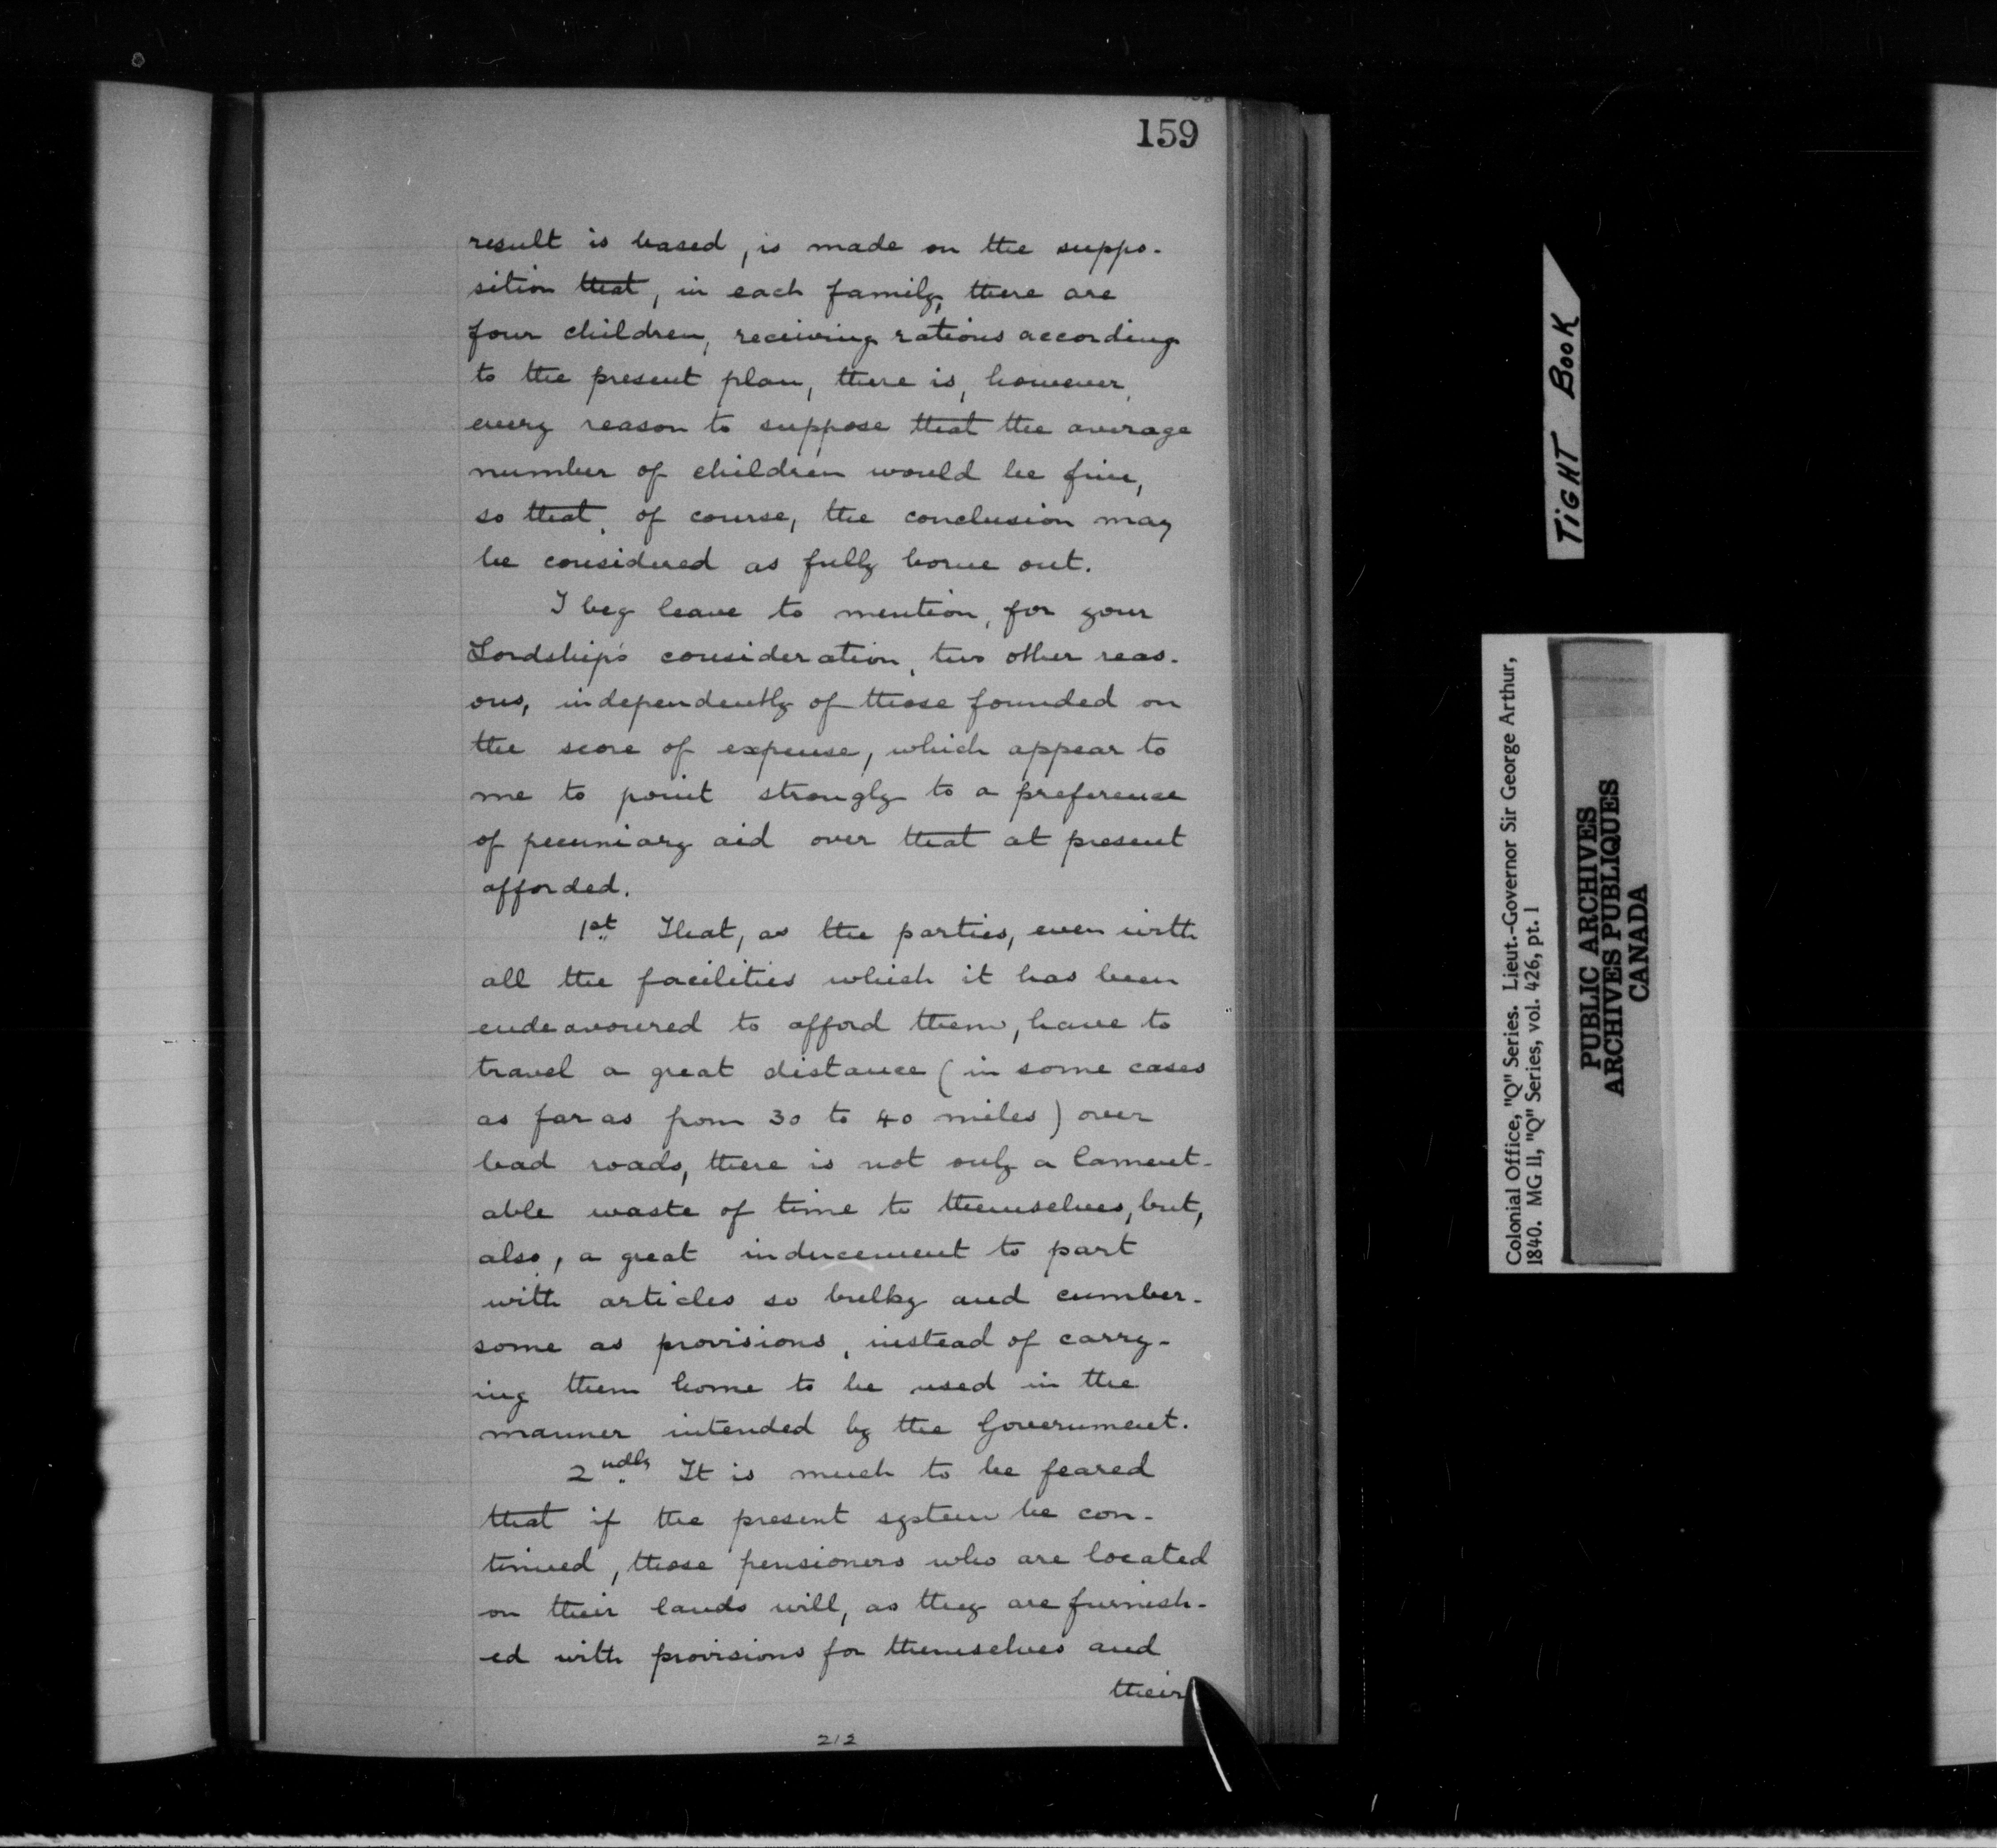 159
result is based, is made on the suppo-
sition that, in each family, there are
four children, receiving rations according
to the present plan, there is, however,
every reason to suppose that the average
number of children would be five,
so that, of course, the conclusion may
be considered as fully borne out.
I beg leave to mention, for your
Lordship's consideration, two other reas-
ons, independently of those founded on
the score of expense, which appear to
me to point strongly to a preference
of pecuniary aid over that at present
afforded.
1st That, as the parties, even with
all the facilities which it has been
endeavoured to afford them, have to
travel a great distance (in some cases
as far as from 30 to 40 miles) over
bad roads, there is not only a lament-
able waste of time to themselves, but,
also, a great inducement to part
with articles so bulky and cumber-
some as provisions, instead of carry-
ing them home to be used in the
manner intended by the Government.
2ndly It is much to be feared
that if the present system be con-
tinued, those pensioners who are located
on their lands will, as they are furnish-
ed with provisions for themselves and
their
212
TIGHT BOOK
Colonial Office, "Q" Series. Lieut.-Governor Sir George Arthur,
1840. MG 11, "Q" Series, vol. 426, pt. 1
PUBLIC ARCHIVES
ARCHIVES PUBLIQUES
CANADA